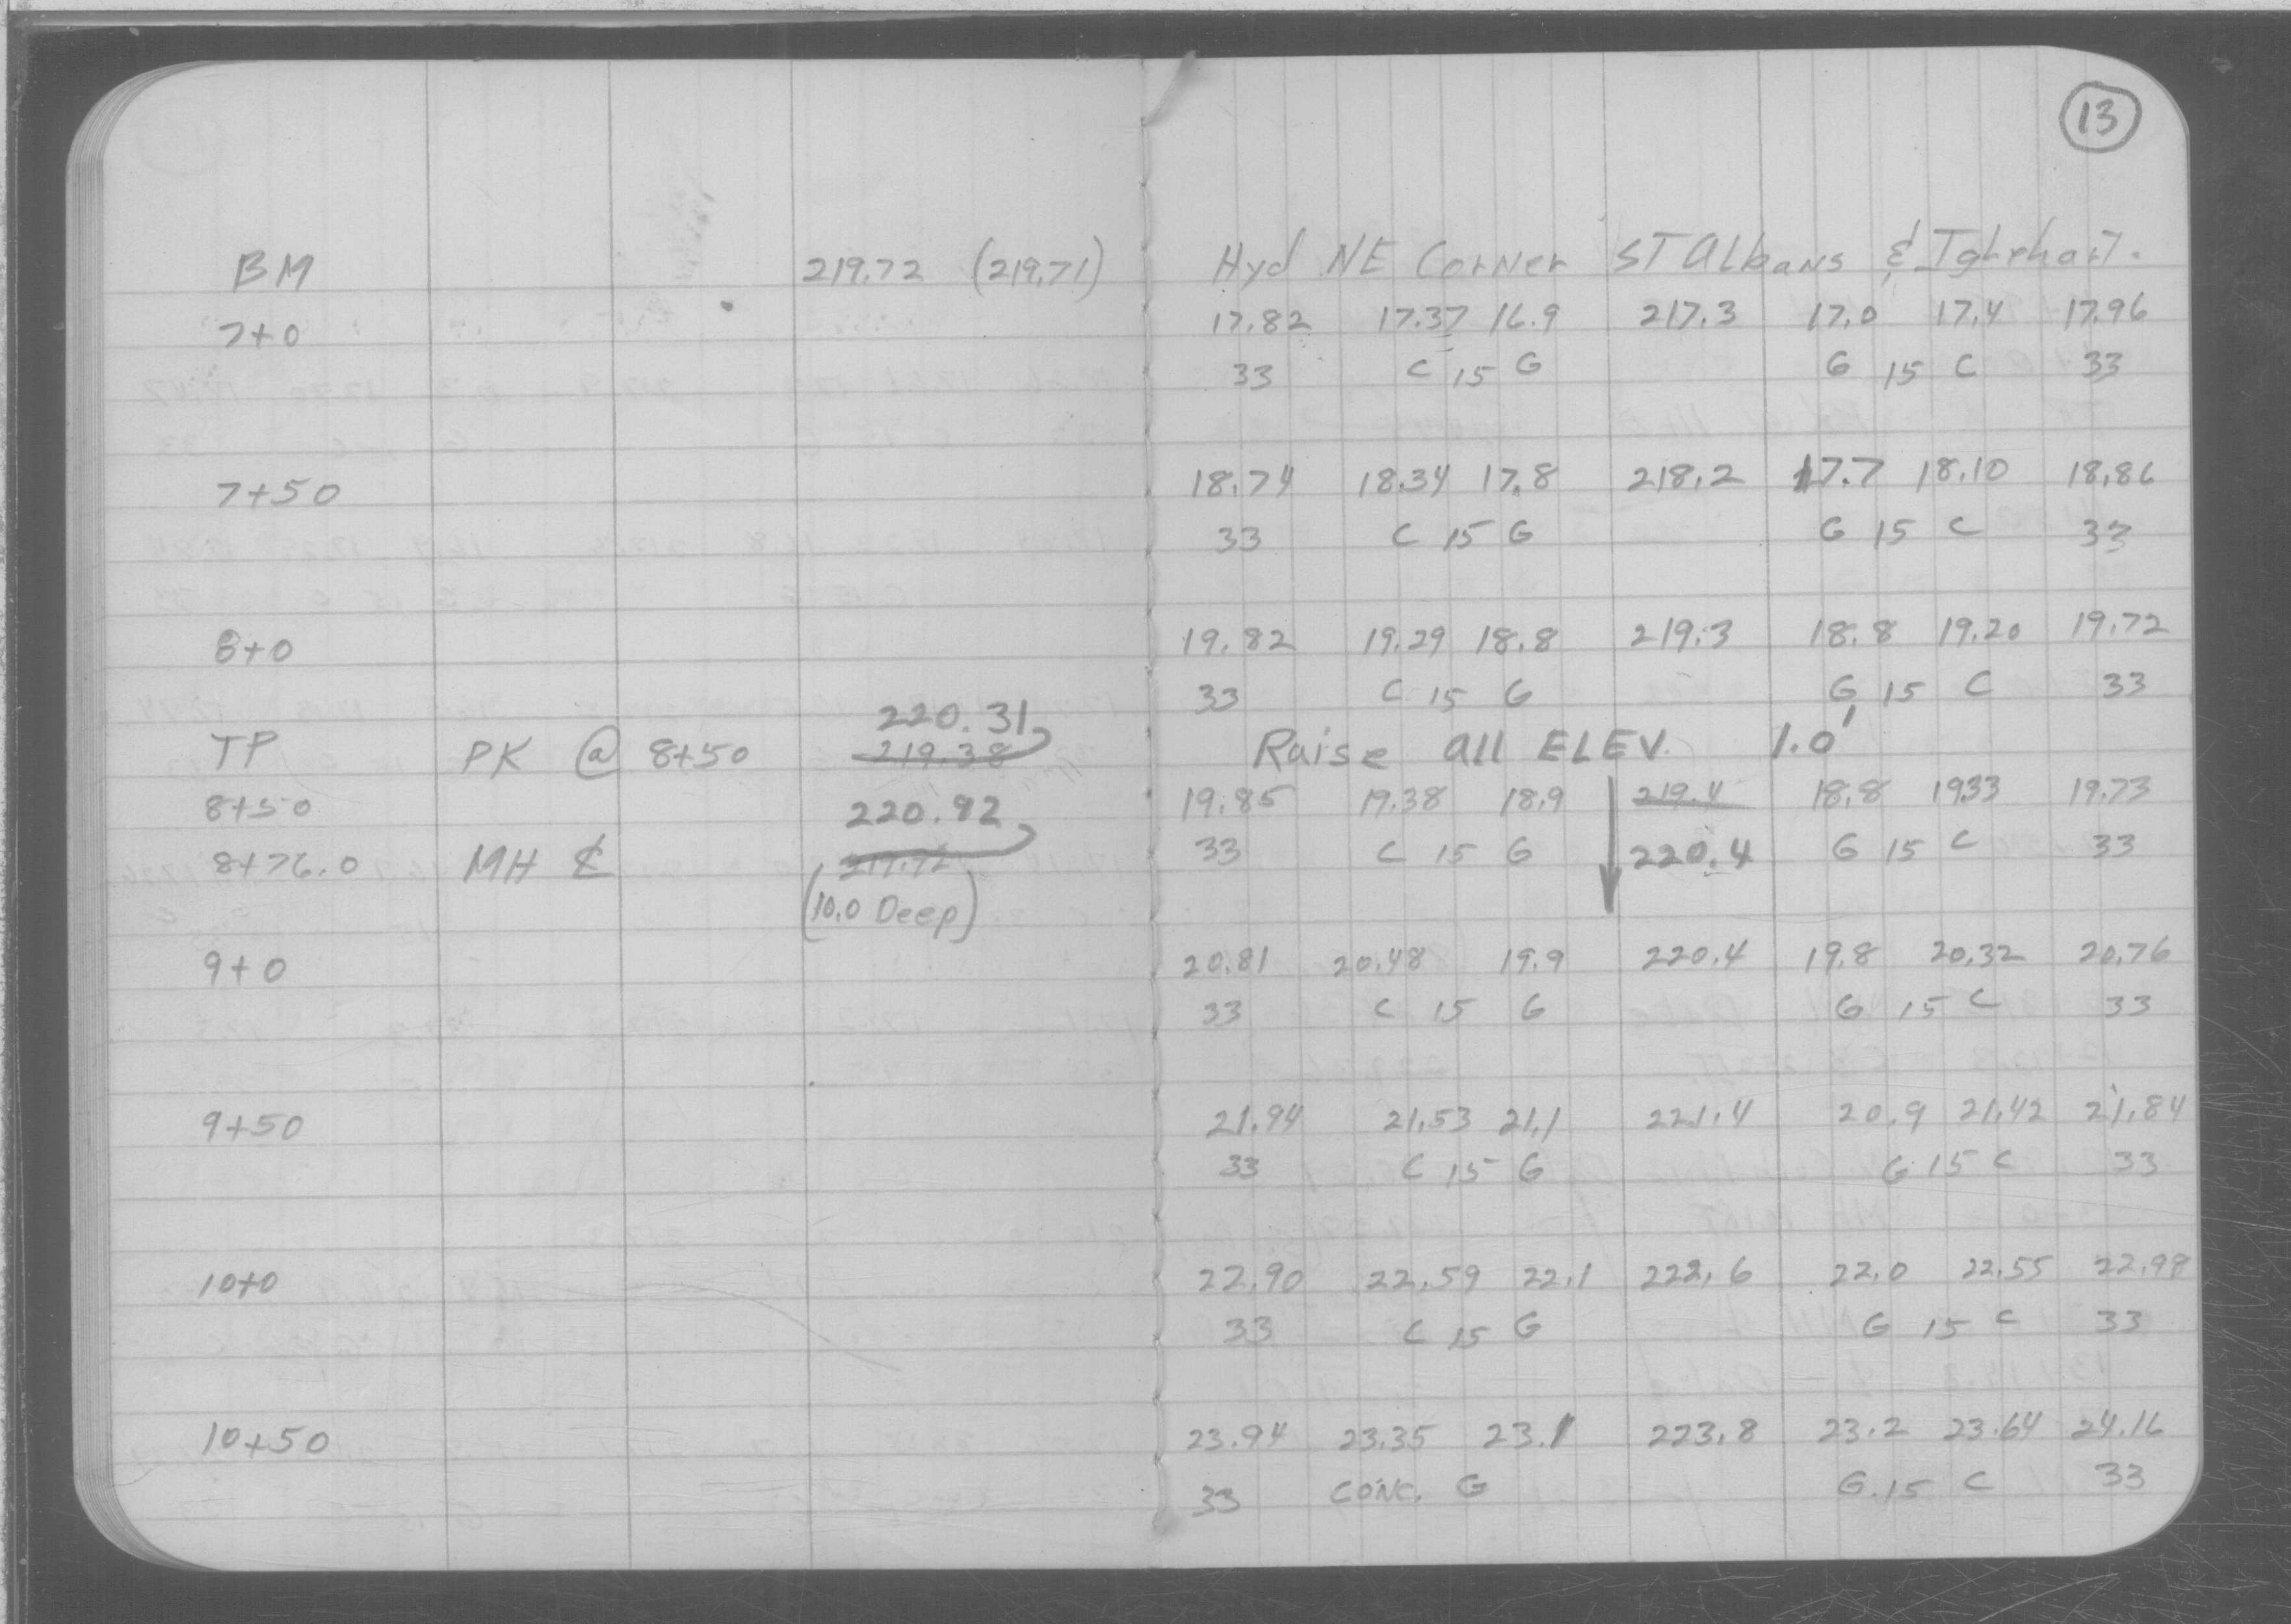 13
BM 219.72 (219.71) Hyd NE Corner ST Albans & Iglehart.
7+0 17.82 17.37 16.9 217.3 17.0 17.4 17.96
33 C 15 G G 15 C 33
7+50 18.74 18.34 17.8 218.2 17.7 18.10 18.86
33 C 15 G G 15 C 33
8+0 19.82 19.29 18.8 219.3 18.8 19.20 19.72
33 C 15 G G 15 C 33
220.31
TP PK @ 8+50 219.38 Raise all ELEV. 1.0'
8+50 220.92 19.85 19.38 18.9 219.4 18.8 19.33 19.73
8+76.0 MH ₵ 33 C 15 G 220.4 G 15 C 33
(10.0 Deep)
9+0 20.81 20.48 19.9 220.4 19.8 20.32 20.76
33 C 15 G G 15 C 33
9+50 21.94 21.53 21.1 221.4 20.9 21.42 21.84
33 C 15 G G 15 C 33
10+0 22.90 22.59 22.1 222.6 22.0 22.55 22.98
33 C 15 G G 15 C 33
10+50 23.94 23.35 23.1 223.8 23.2 23.64 24.16
33 CONC. G G.15 C 33